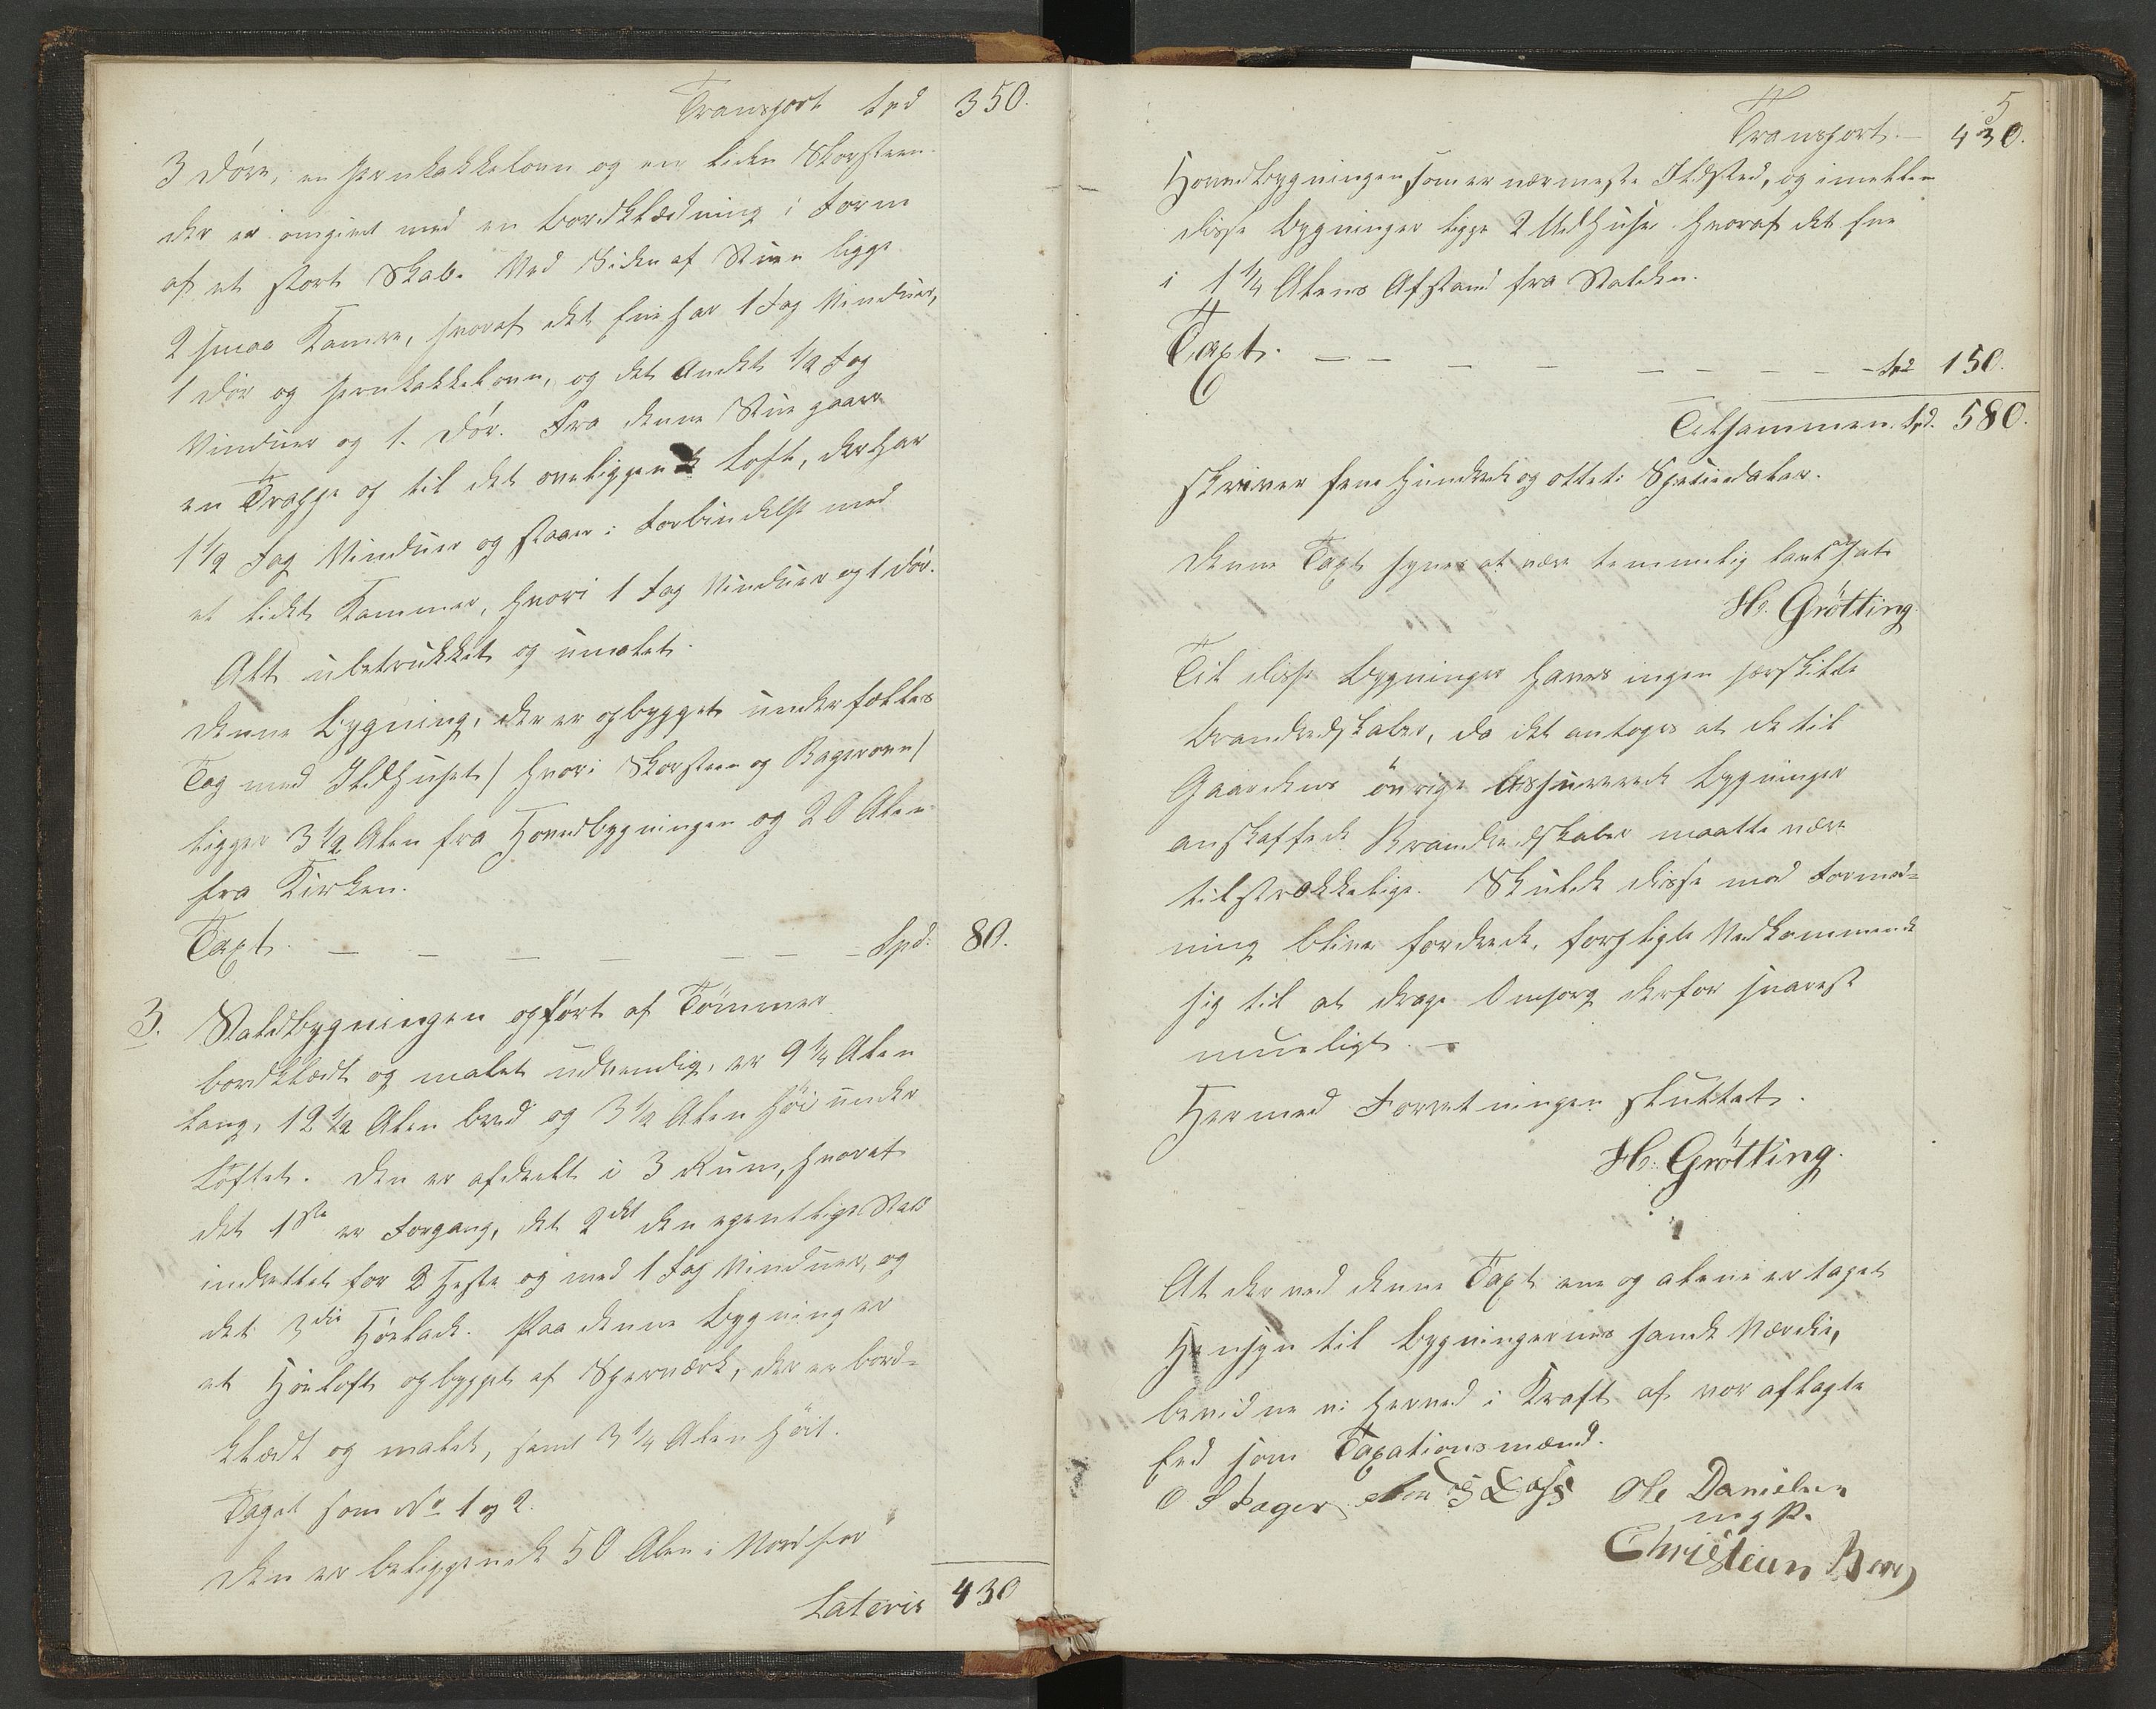 Transport Spd 350.
3 Döre, en Jernkakkelovn og en liden Skorsteen
der er omgivet med en Bordklædning i Form
af et stort Skab. Ved Siden af Stuen ligge
2 smaa Kamre, hvoraf det Ene har 1 Fag Vinduer,
1 Dör og Jernkakkelovn, og det Andet 1/2 Fag
Vinduer og 1. Dör. Fra denne Stue gaaer
en Trappe op til det oveliggende Loft, der har
1 1/2 Fag Vinduer og staaer i Forbindelse med
et lidet Kammer, hvori 1 Fag Vinduer og 1 Dör.
Alt ubetrukket og umalet.
Denne Bygning, der er opbygget under fælles
Tag med Ildhuset / hvori Skorsteen og Bagerovn /
ligger 3 1/2 Alen fra Hovedbygningen og 20 Alen
fra Kirken.
Taxt. — — — — — — — Spd: 80.
3. Staldbygningen opført af Tömmer
bordklædt og malet udvendig, er 9 1/4 Alen
lang, 12 1/2 Alen bred og 3 1/2 Alen höi under
Loftet. Den er afdeelt i 3 Rum, hvoraf
det 1ste er Forgang, det 2det den egentlige Stald
indrettet for 2 Heste og med 1 Fag Vinduer, og
det 3die Höelade. Paa denne Bygning er
et Höeloft opbygget af Sperværk, der er bord-
klædt og malet, samt 3 1/4 Alen höit.
Taget som No 1 og 2.
Den er beliggende 50 Alen i Nord for
Lateris 430
5
Transport. — 430.
Hovedbygningen, som er nærmeste Ildsted, og imellem
disse Bygninger ligge 2 Udhuse hvoraf det Ene
i 1 1/4 Alens Afstand fra Stalden.
Taxt. — — — — — — — — Spd 150.
Tilsammen Spd. 580.
skriver fem Hundrede og otteti Speciedaler.
Denne Taxt synes at være temmelig lavt ansat
H. Grötting
Til disse Bygninger haves ingen særskilte
Brandredskaber, da det antoges at de til
Gaardens övrige Assurerede Bygninger
anskaffede Brandredskaber maatte være
tilstrækkelige. Skulde disse mod Formod-
ning blive fordrede, forpligte Vedkommende
sig til at drage Omsorg derfor snarest
mueligt. —
Hermed Forretningen sluttet.
H: Grötting.
At der ved denne Taxt ene og alene er taget
Hensyn til Bygningernes sande Værdie,
bevidne vi herved i Kraft af vor aflagte
Eed som Taxationsmænd.
O S Ole Danielsen
Christian Berg